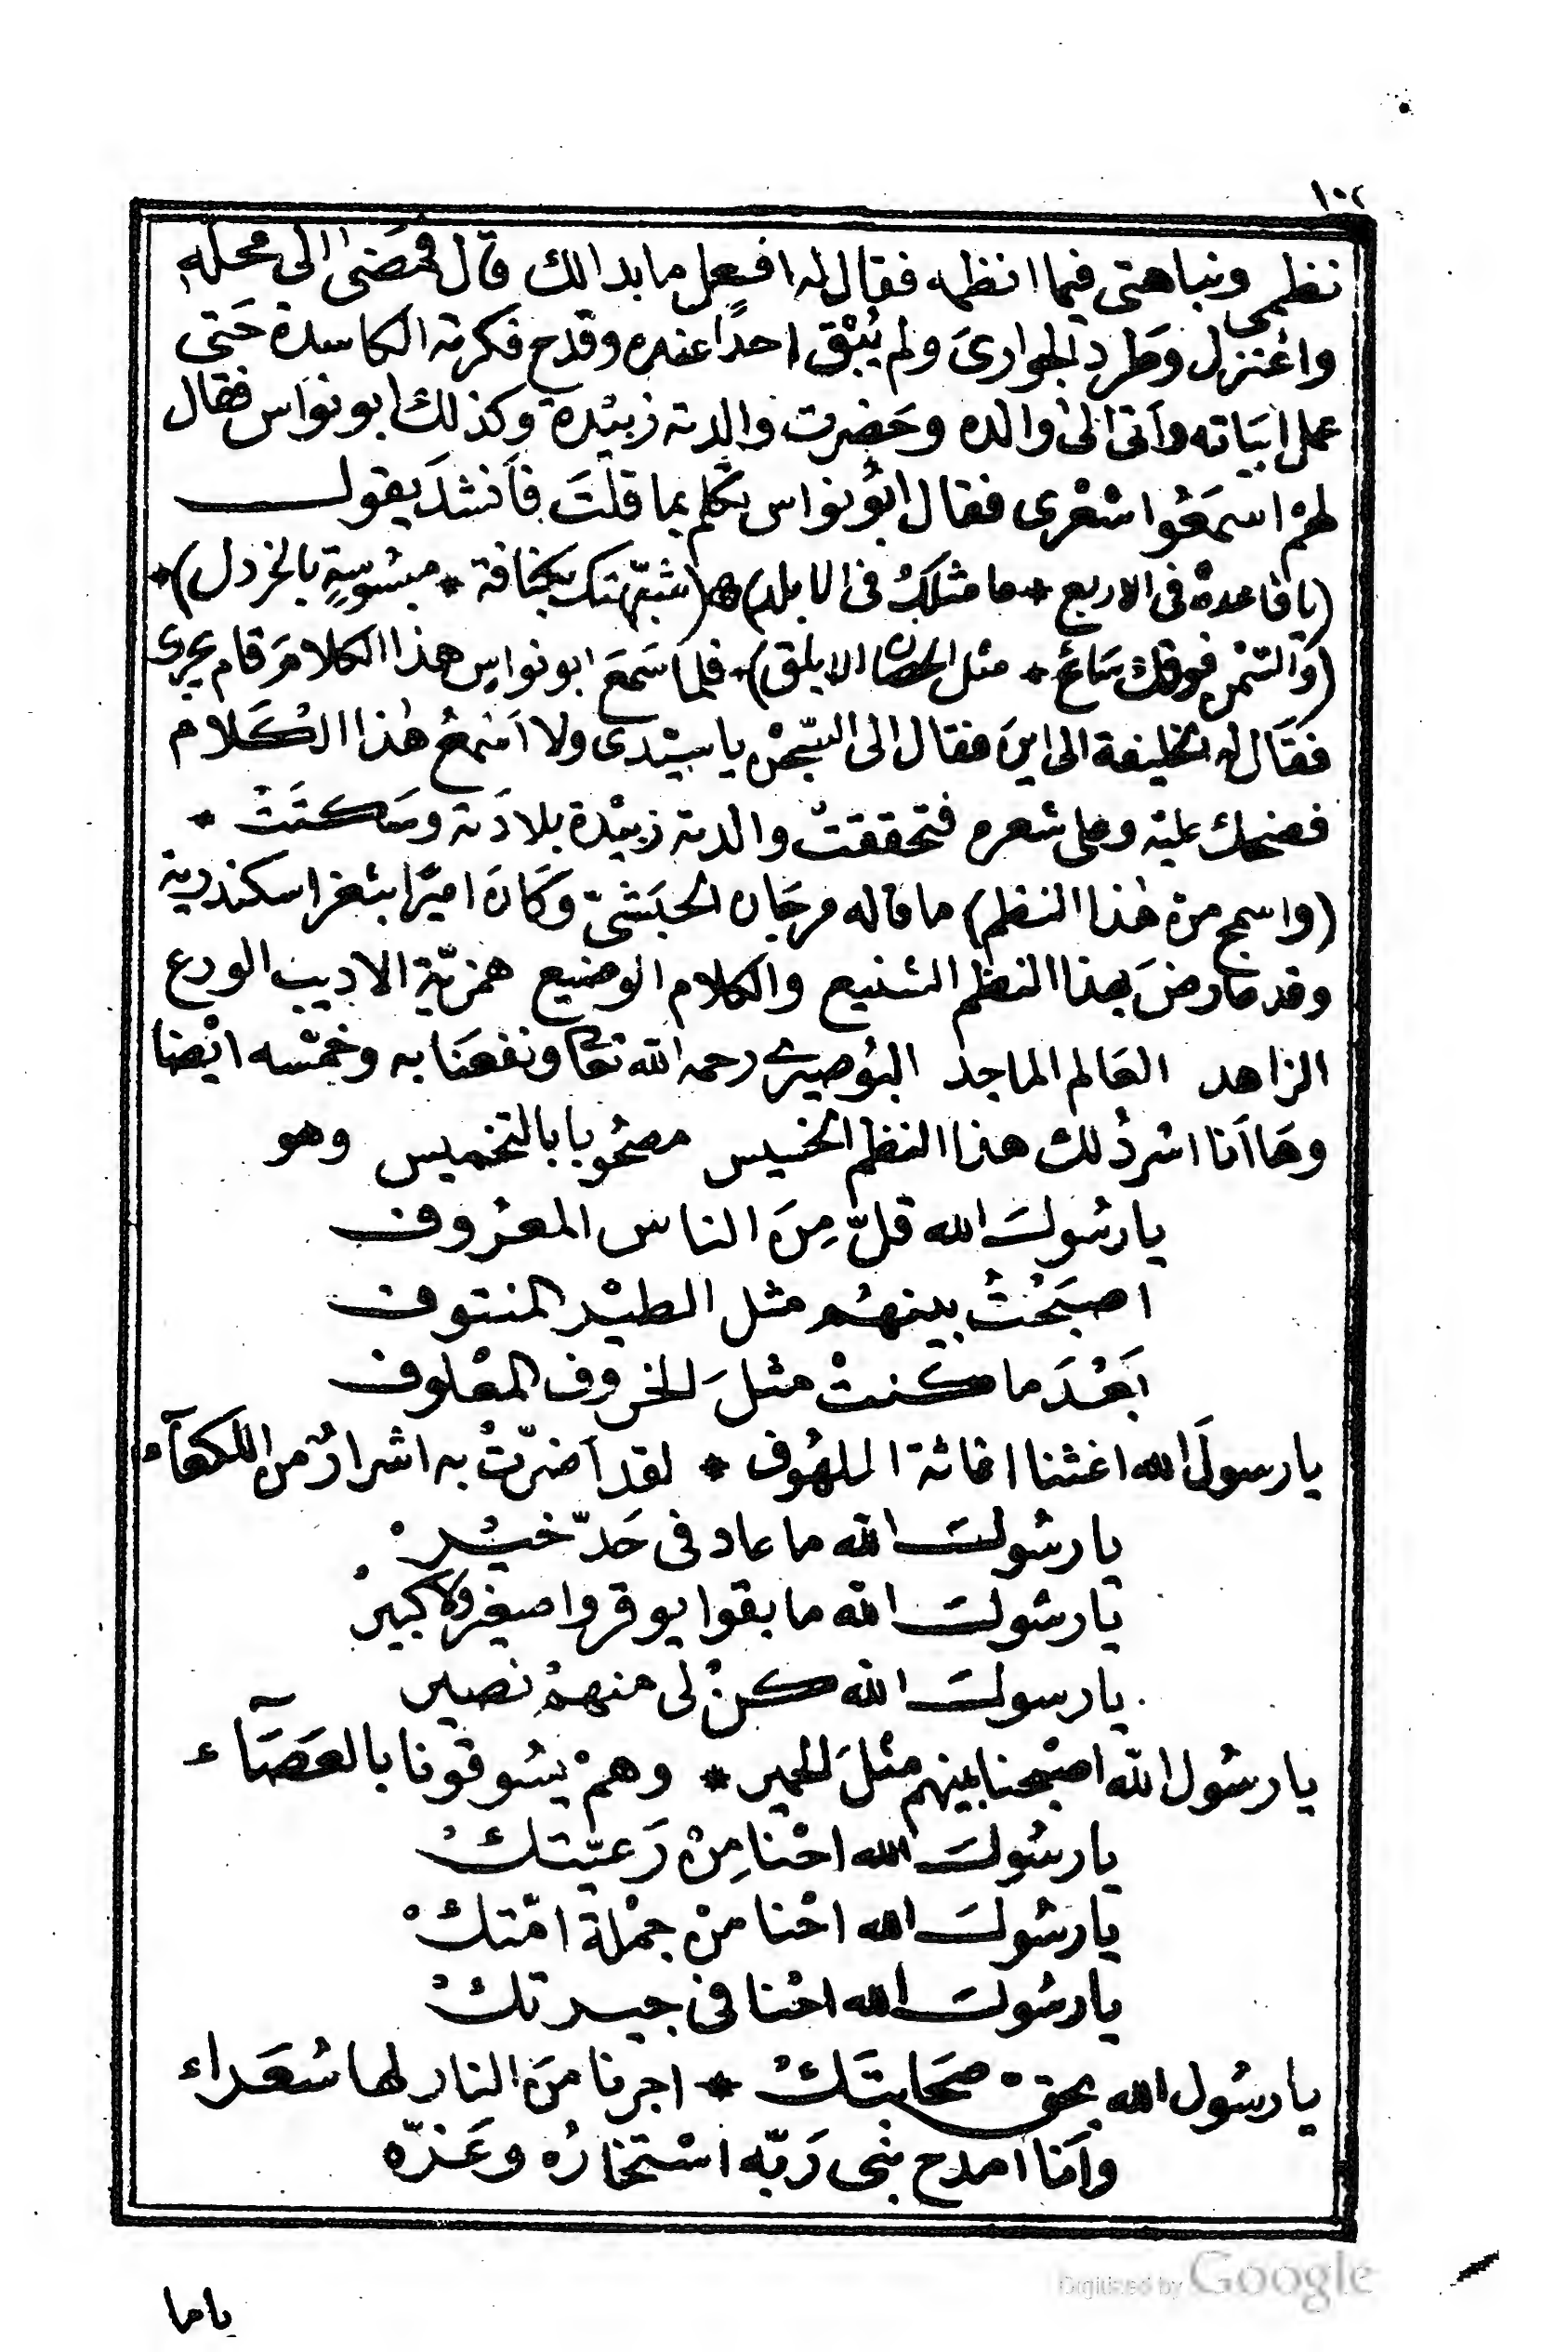 ١٠٢
نظمي ونباهتى فيما انظمه فقال له افعل ما بدا لك قال فمضى الى محله
واعْتزل وَطرد الجوارىَ ولم يُبْق احدًا عنده وقدح فكرته الكاسدة حَتى
عمل ابيَاته وأتى الى والده وحَضرت والدته زبيْدة وكذلك ابو نوَاس فقال
لهمْ اسمَعُوا شعْرى فقال ابُو نواس تكلم بما قلتَ فأنشدَ يقول
(يا قاعدة فى الاربع * ما مثلكُ فى الابلد) (شبّهتك بكنافة * مبسُوسةٍ بالخردل)*
(وَالسّمْن فوقك سَائح * مثل الحصان الابلق)* فلما سَمعَ ابو نواس هذا الكلامَ قام يجرى
فقَال له الخليفة الى اينَ فقال الى السّجْن يا سيْدى ولا اسْمعُ هٰذا الكَلام
فضحك عليْه وعلى شعره فتحققتْ والدته زبيْدة بلادَته وسَكتَتْ *
(واسمج من هٰذا النظم) ما قاله مرجَان الحبَشىّ وَكَانَ اميرًا بثغر اسكندرية
وقد عارضَ بهذا النظم الشنيع والكلام الوضيع همزيّة الاديب الورع
الزاهد العَالم الماجد البُوصيري رحمه الله تعا ونفعَنا به وخمّسه ايْضا
وهَا اَنا اسْردُ لك هذا النظم الخسيس مصحُوبا بالتخميس وهو
يا رسُولَ الله قلّ مِنَ الناس المعْروف
اصبَحْتُ بينهُم مثل الطيْر المنتوف
بَعْدَ ما كنتْ مثلَ الخروف المعْلوف
يا رسولَ الله اغثنا اغاثة الملهُوف * لقد اضرّتْ به اشرارٌ من اللكعآء
يا رسُولَ الله ما عاد فى حَدّ خيْرْ
يا رسُولَ الله ما بقوا يوقروا صغير ولا كبيرْ
يا رسولَ الله كنْ لى منهمْ نصير
يا رسُول الله اصْبحنا بينهم مثْلَ الحمير * وهمْ يسُوقونا بالعَصَآء
يا رسُولَ الله احْنا مِنْ رَعيّتكْ
يا رسُولَ الله احْنا منْ جمْلة امّتكْ
يا رسُولَ الله احْنا فى جيرتكْ
يا رسُول الله بحق صحَابتَكْ * اجرنا منَ النار لها سُعَداء
واَنا امدح نبى رَبّه اسْتخارُه وعَزّه
ياما
Digitized by Google